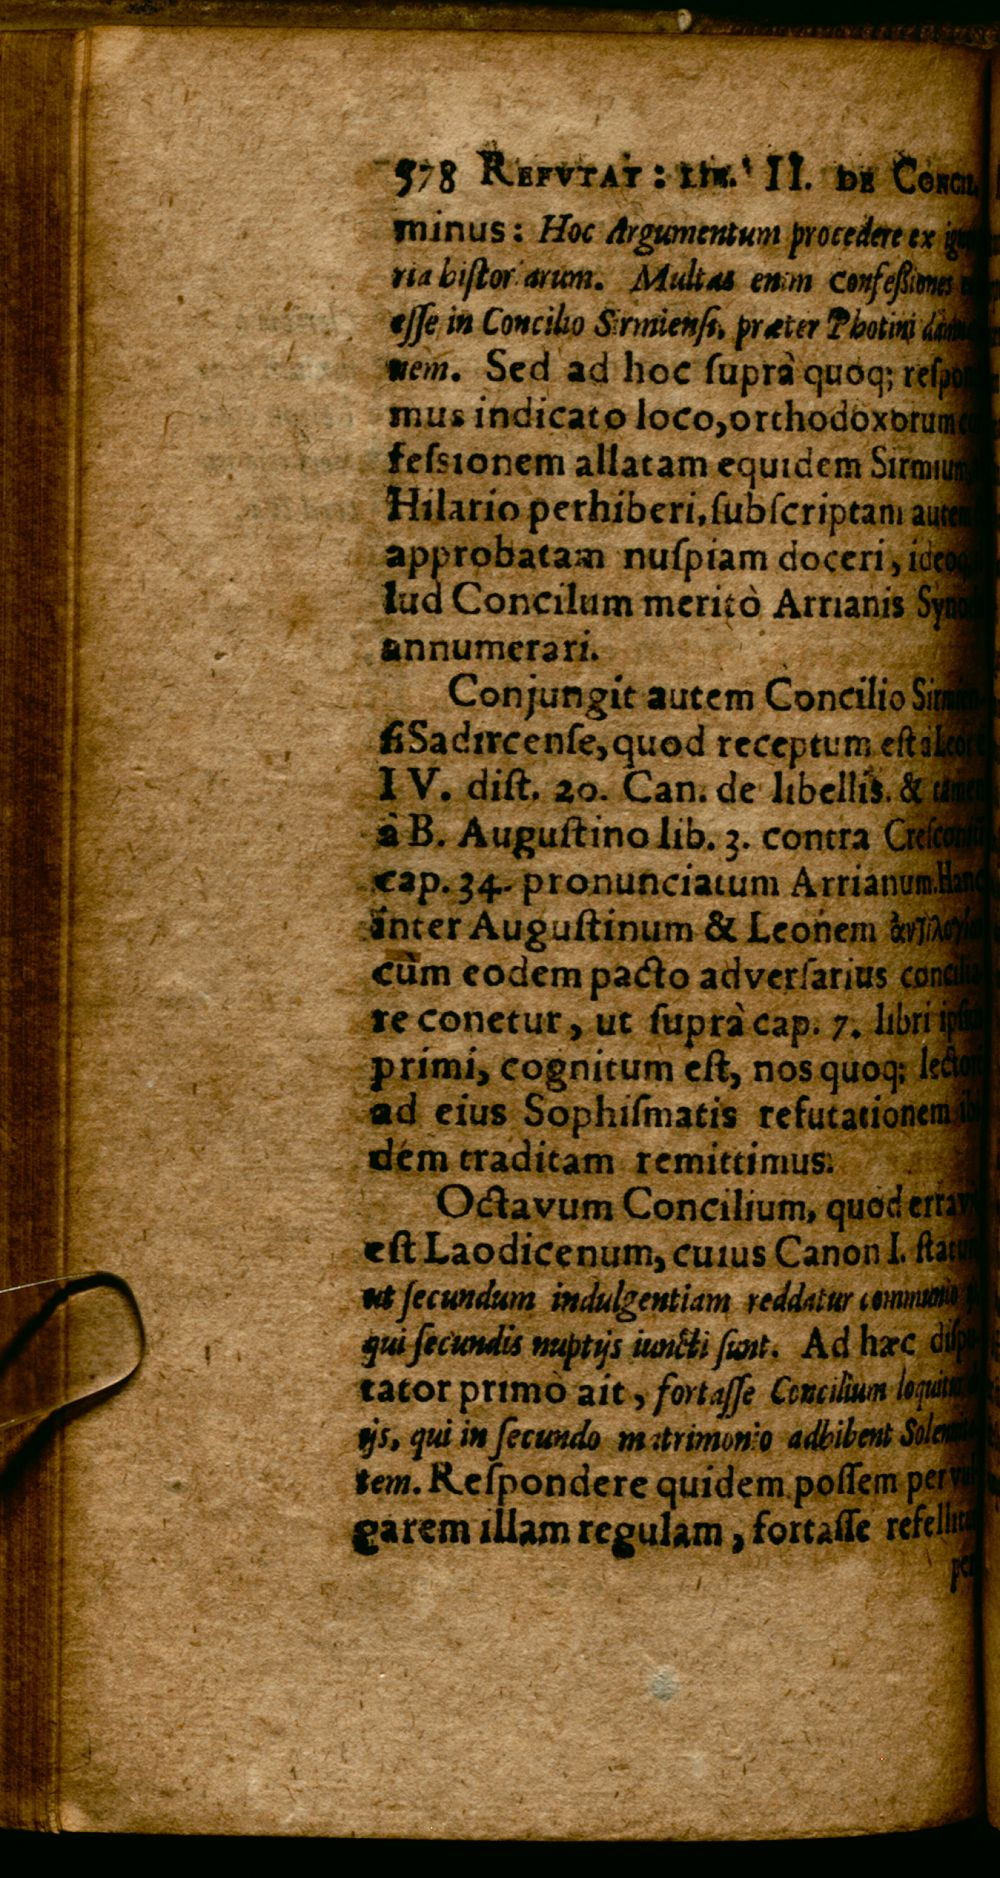 578 REFVTAT: LIB. II. DE CONCIL.
minus: Hoc Argumentum procedere ex
ria histor arum. Multas enim confeßiones
esse in Concilio Sirmiensi, præter Photini
nem. Sed ad hoc ſuprà quoq;
mus indicato loco, orthodoxorum
feſsionem allatam equidem Sirmium
Hilario perhiberi, ſubſcriptam autem
approbatam nuſpiam doceri,
lud Concilum meritò Arrianis
annumerari.
Conjungit autem Concilio
ſi Sadircenſe, quod receptum eſt à Leone
IV. diſt. 20. Can. de libellis. & tamen
à B. Auguſtino lib. 3. contra
cap. 34. pronunciatum Arrianum. Hanc
inter Auguſtinum & Leonem
cùm eodem pacto adverſarius
re conetur, ut ſuprà cap. 7. libri
primi, cognitum eſt, nos quoq;
ad eius Sophiſmatis refutationem
dem traditam remittimus.
Octavum Concilium, quod
eſt Laodicenum, cuius Canon I.
ut ſecundum indulgentiam reddatur communio
qui ſecundis nuptijs iuncti ſunt. Ad hæc
tator primò ait, fortaſſe Concilium
ijs, qui in ſecundo matrimonio adhibent
tem. Reſpondere quidem poſſem per
garem illam regulam, fortaſſe